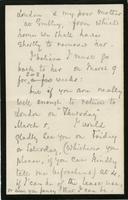 London & my poor mother
at Emltry, from which
home we shall have
shortly to remove her.
I believe I must go
back to her on March 9
for a few weeks:
but if you are really
well enough to return to
London on Thursday
March 5, I would
gladly see you on Friday
or Saturday (whichever you
please, if you can kindly
tell me beforehand) at 4
if I can be of the least use,